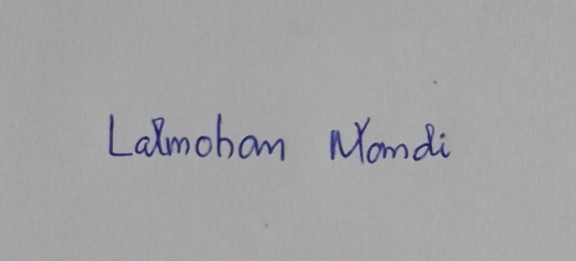 Lalmohan Mandi